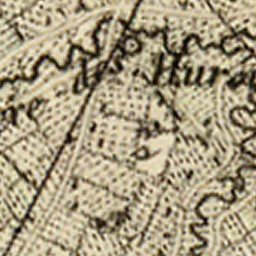 des Huro
re